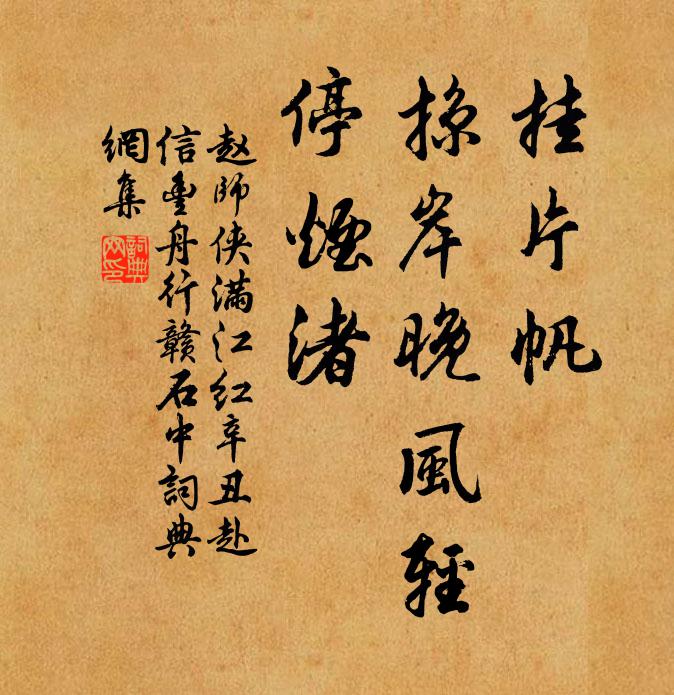 挂片帆
掠岸晚風輕
停煙渚
赵師侠滿江红辛丑赴
信豊舟行赣石中詞典
網集
詞典
网印